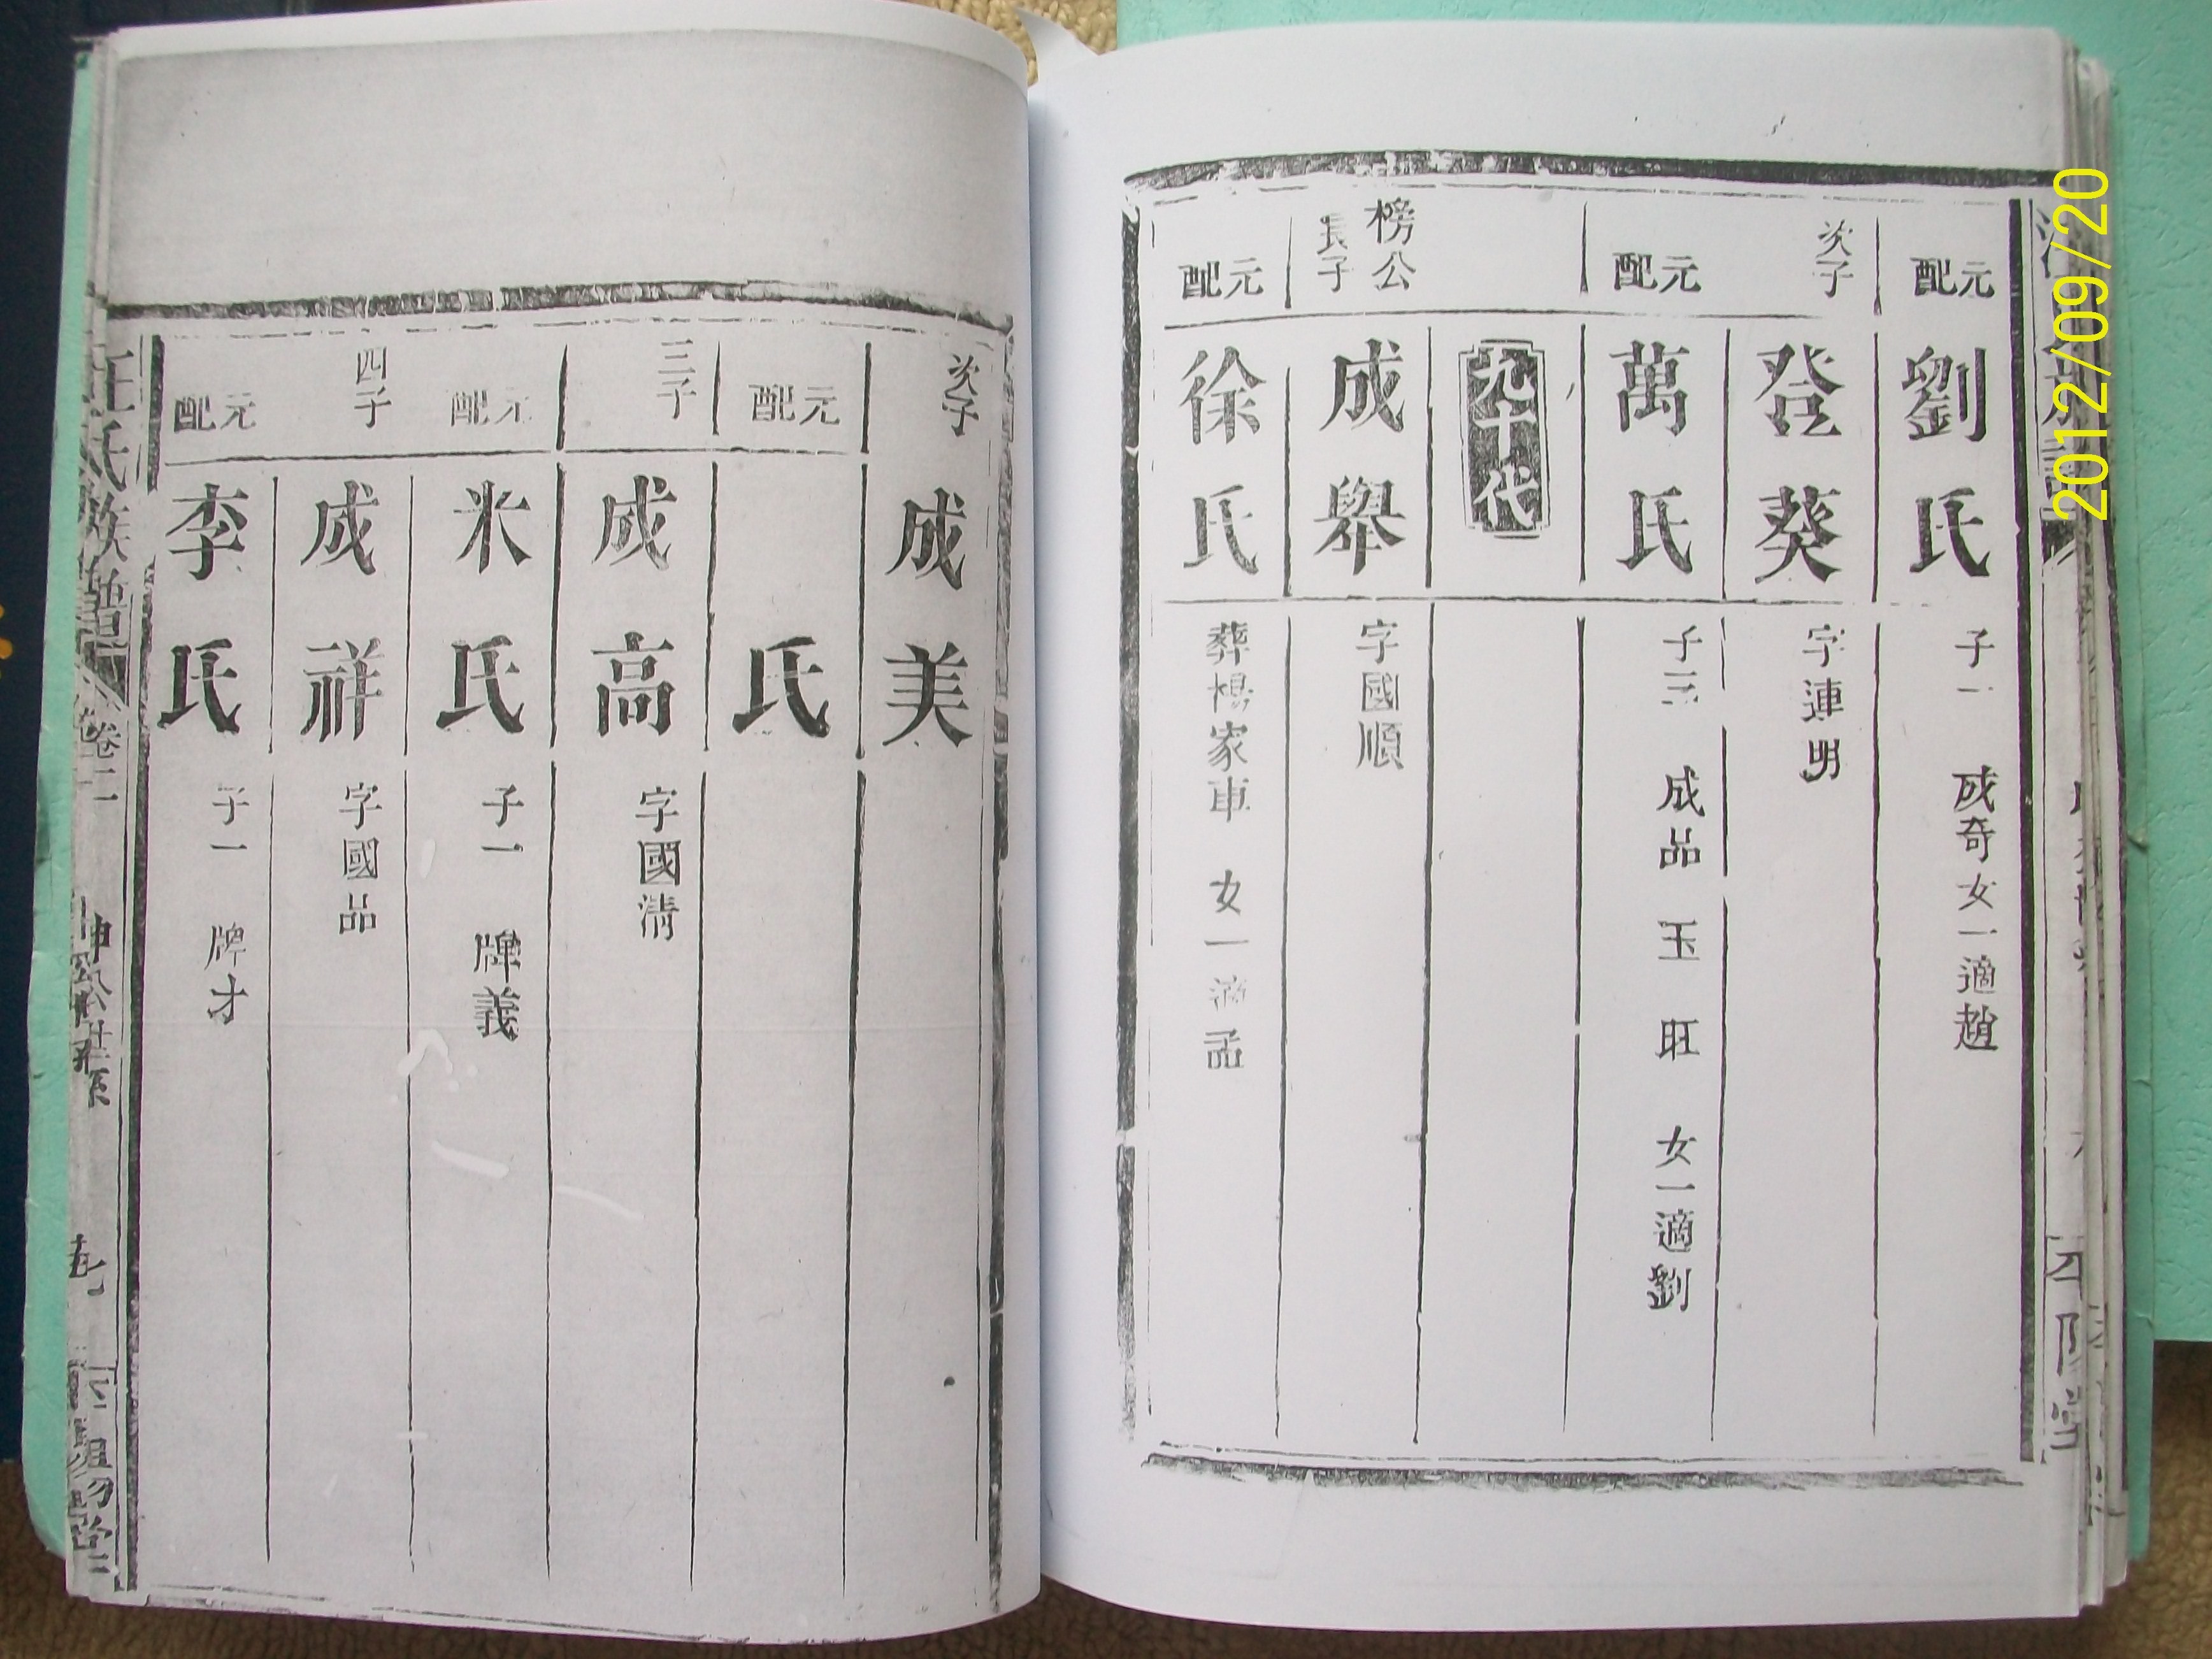 元配 劉氏 子一 成奇 女一適趙
次子 登葵 字連明
元配 萬氏 子三 成品 玉 旺 女一適劉
九十代
榜公長子 成舉 字國順
元配 徐氏 葬楊家車 女一適孟
次子 成美
元配 氏
三子 成高 字國清
元配 米氏 子一 牌義
四子 成祥 字國品
元配 李氏 子一 牌才
汪氏族譜 卷二
2012/09/20